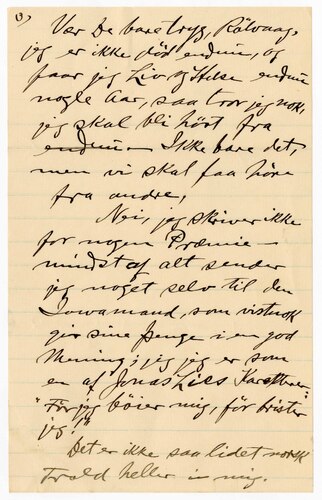 6)
Vær De bare tryg, Rölvaag,
jeg er ikke död endnu, og
faar jeg Liv og Helse endnu
nogle Aar, saa tror jeg nok,
jeg skal bli hört fra
endnu — Ikke bare det,
men vi skal faa höre
fra andre,
Nei, jeg skriver ikke
for nogen Præmie —
mindst af alt sender
jeg noget selv til den
Iowamand, som vistnok
gir sine Penge i en god
Mening; jeg jeg er som
en af Jonas Lies Karakterer:
"För jeg böier mig, för brister
jeg!"
Det er ikke saa lidet norsk
Trold heller i mig.